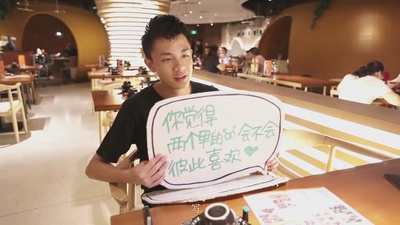 你觉得
两个男的 会不会
彼此喜欢